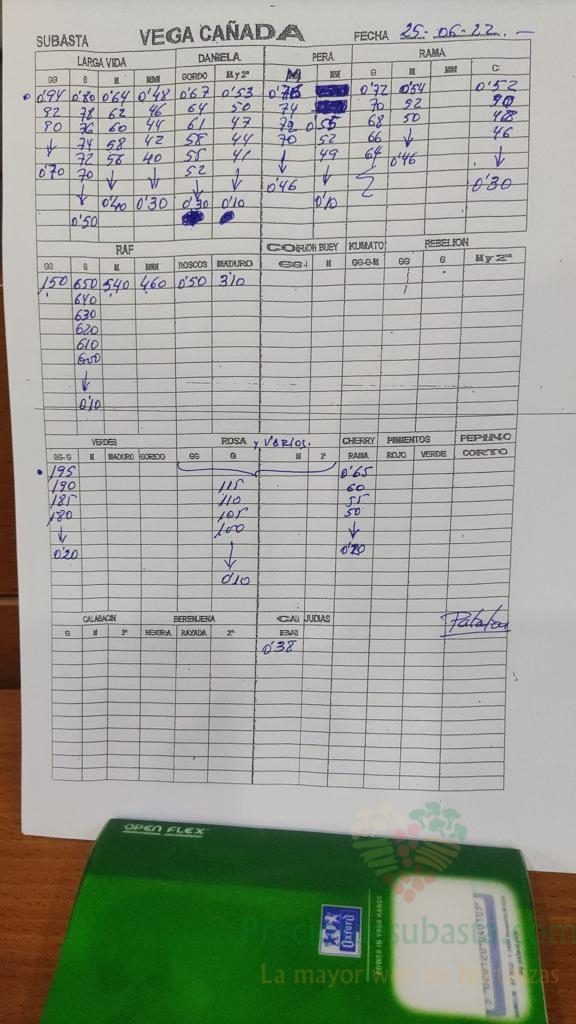 SUBASTA VEGA CAÑADA FECHA 25-06-22.-
LARGA VIDA DANIELA PERA RAMA
GG G M MMM GORDO M y 2ª M MM G M MM C
0'94 0'80 0'64 0'48 0'67 0'53 0'72 0'54 0'52
92 78 62 46 64 50 74 70 52
90 76 60 44 61 47 72 0'55 68 50 48
74 58 42 58 44 70 52 66 46
72 56 40 55 41 49 64 0'46
0'70 70 52 0'46 0'30
0'40 0'30 0'30 0'10 0'10
0'50
RAF CORION BUEY KUMATO REBELION
GG G M MM ROSCOS MADURO GG-I M GG-G-M GG G M y 2ª
150 650 540 460 0'50 3'10
640
630
620
610
600
0'10
VERDES ROSA y VARIOS. CHERRY PIMIENTOS PEPINO
GG-G M MADURO GORDO GG G M 2ª RAMA ROJO VERDE CORTO
195 0'65
190 115 60
185 110 55
180 105 50
100
0'20 0'20
0'10
CALABACIN BERENJENA CALI JUDIAS
G M 2ª NEGRA RAYADA 2ª
0'38
OPEN FLEX
Oxford
POWER IN YOUR HANDS
La mayor